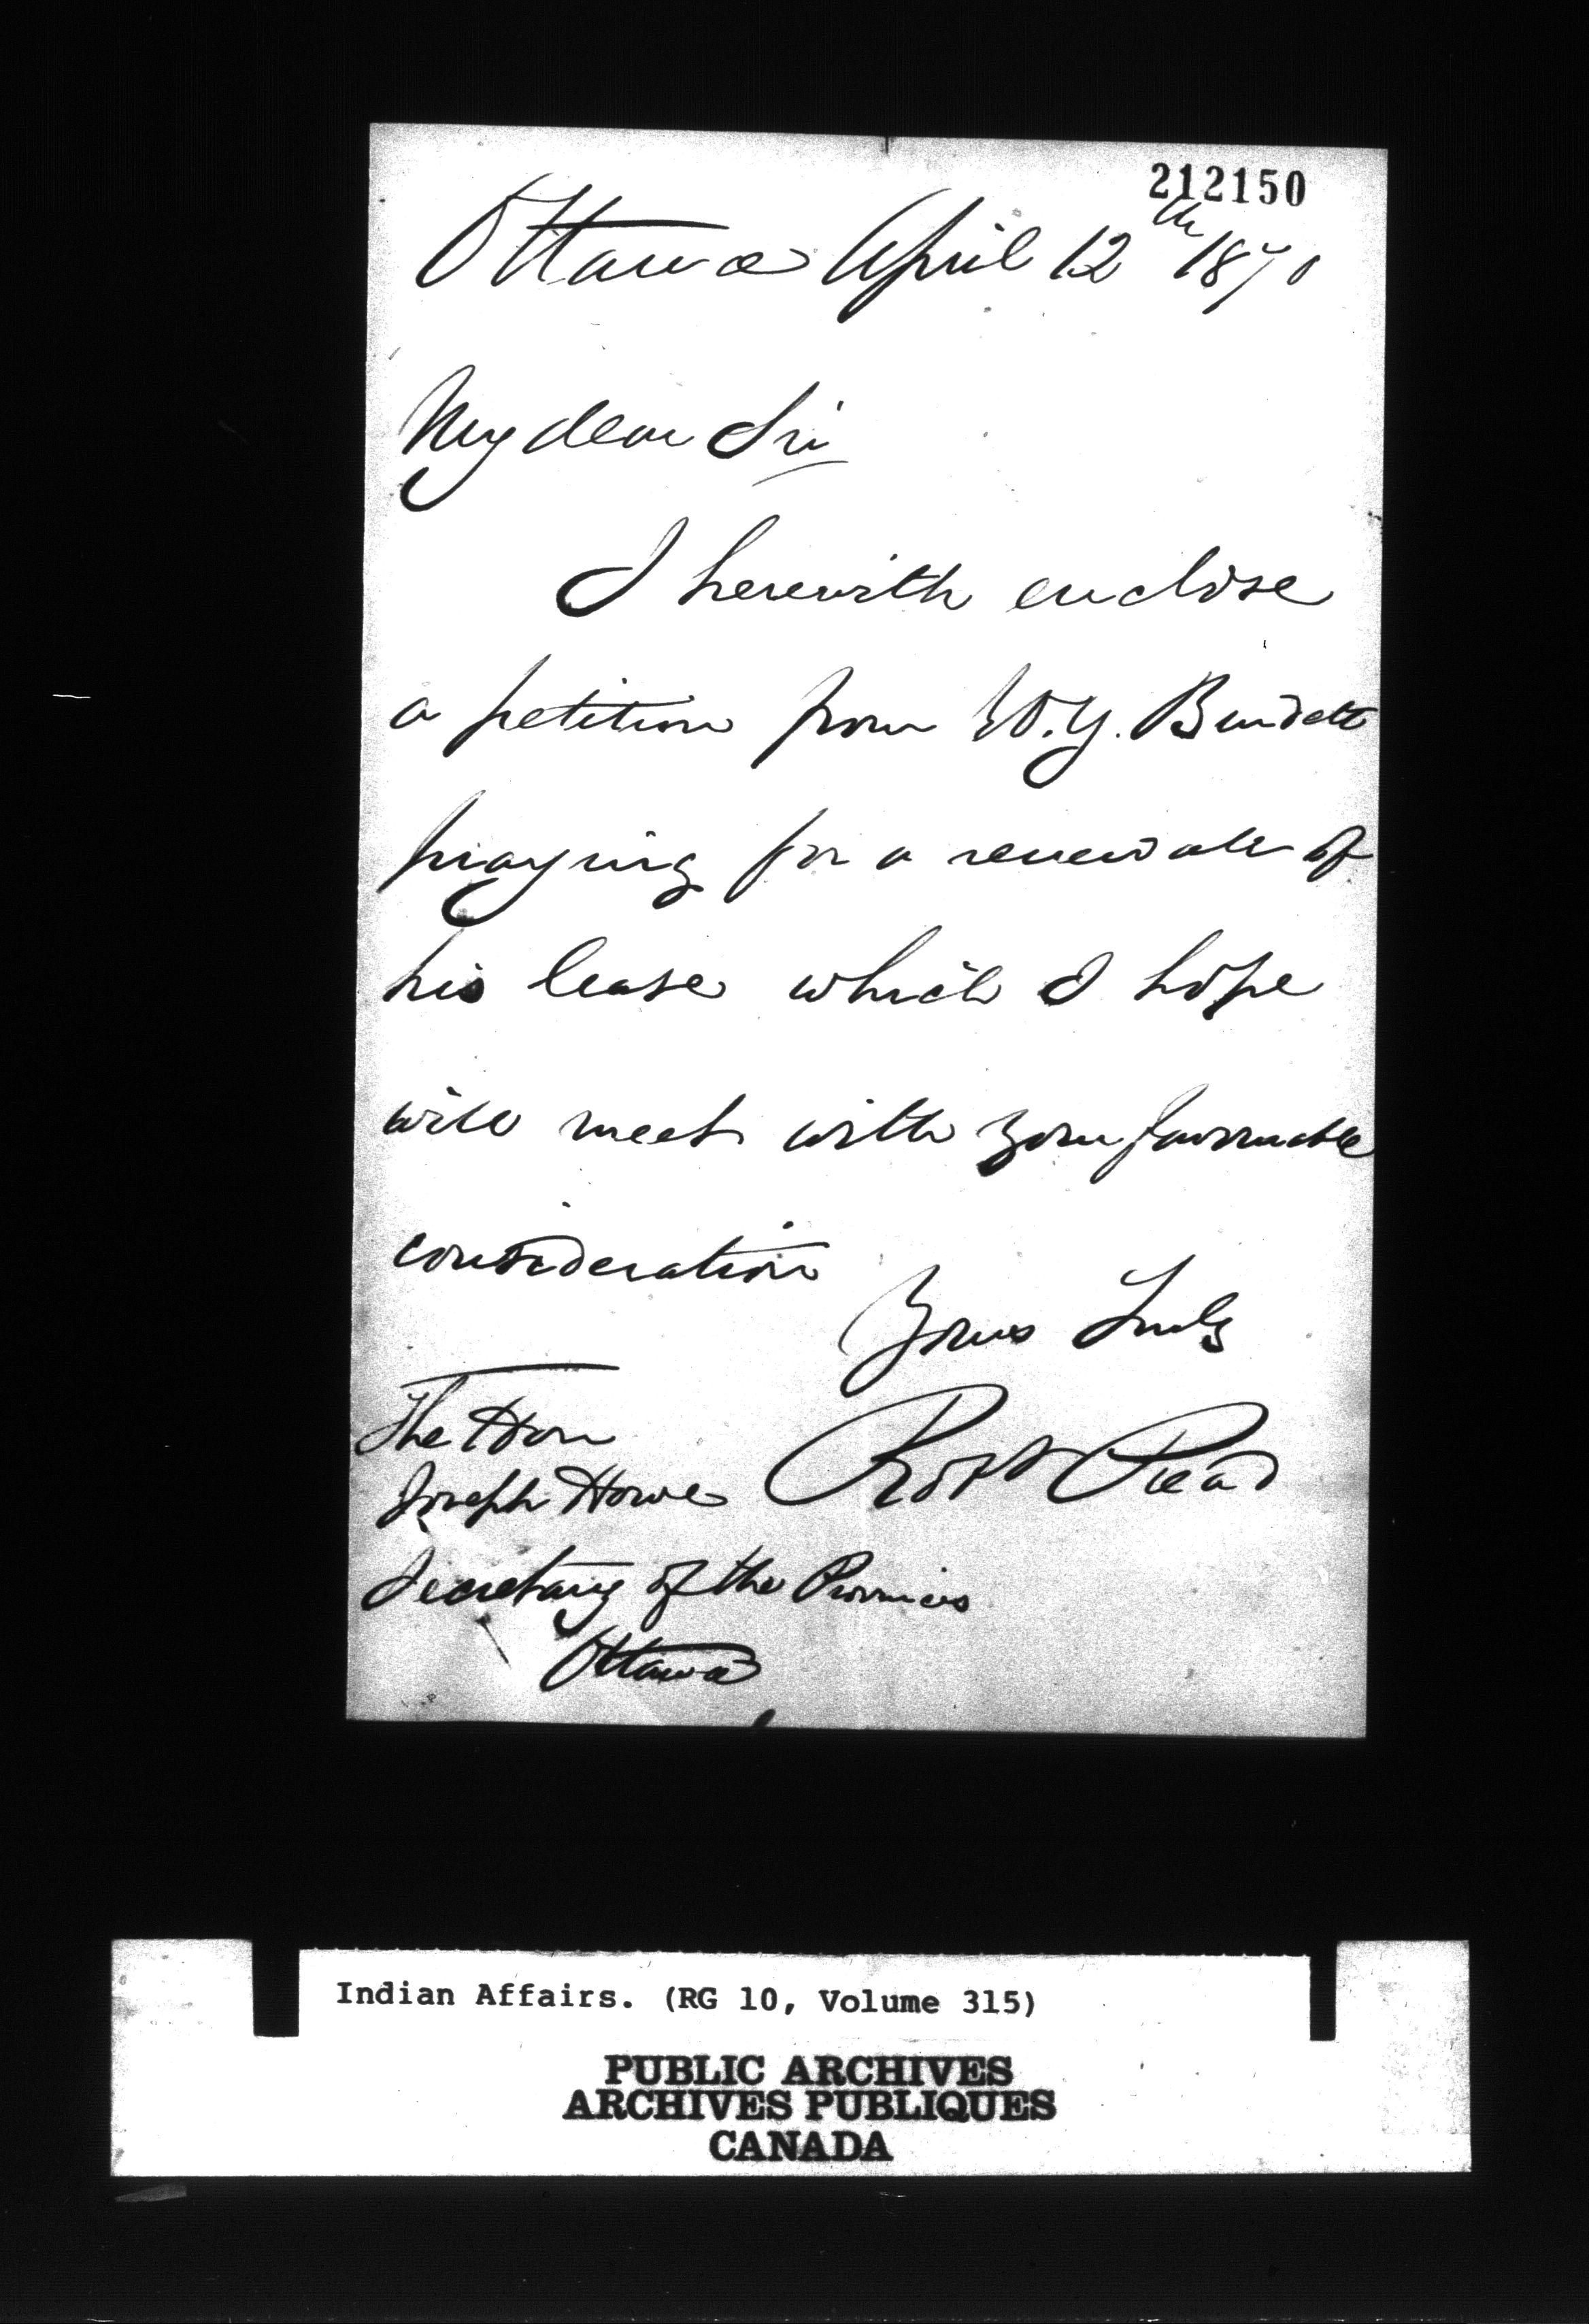 212150
Ottawa April 12th 1870
My dear Sir
I herewith enclose
a petition from W.Y. Burdett
praying for a renewall of
his lease which I hope
will meet with your favourable
consideration
Yours Truly
The Hon
Robt Read
Joseph Howe
Secretary of the Provinces
Ottawa
Indian Affairs. (RG 10, Volume 315)
PUBLIC ARCHIVES
ARCHIVES PUBLIQUES
CANADA